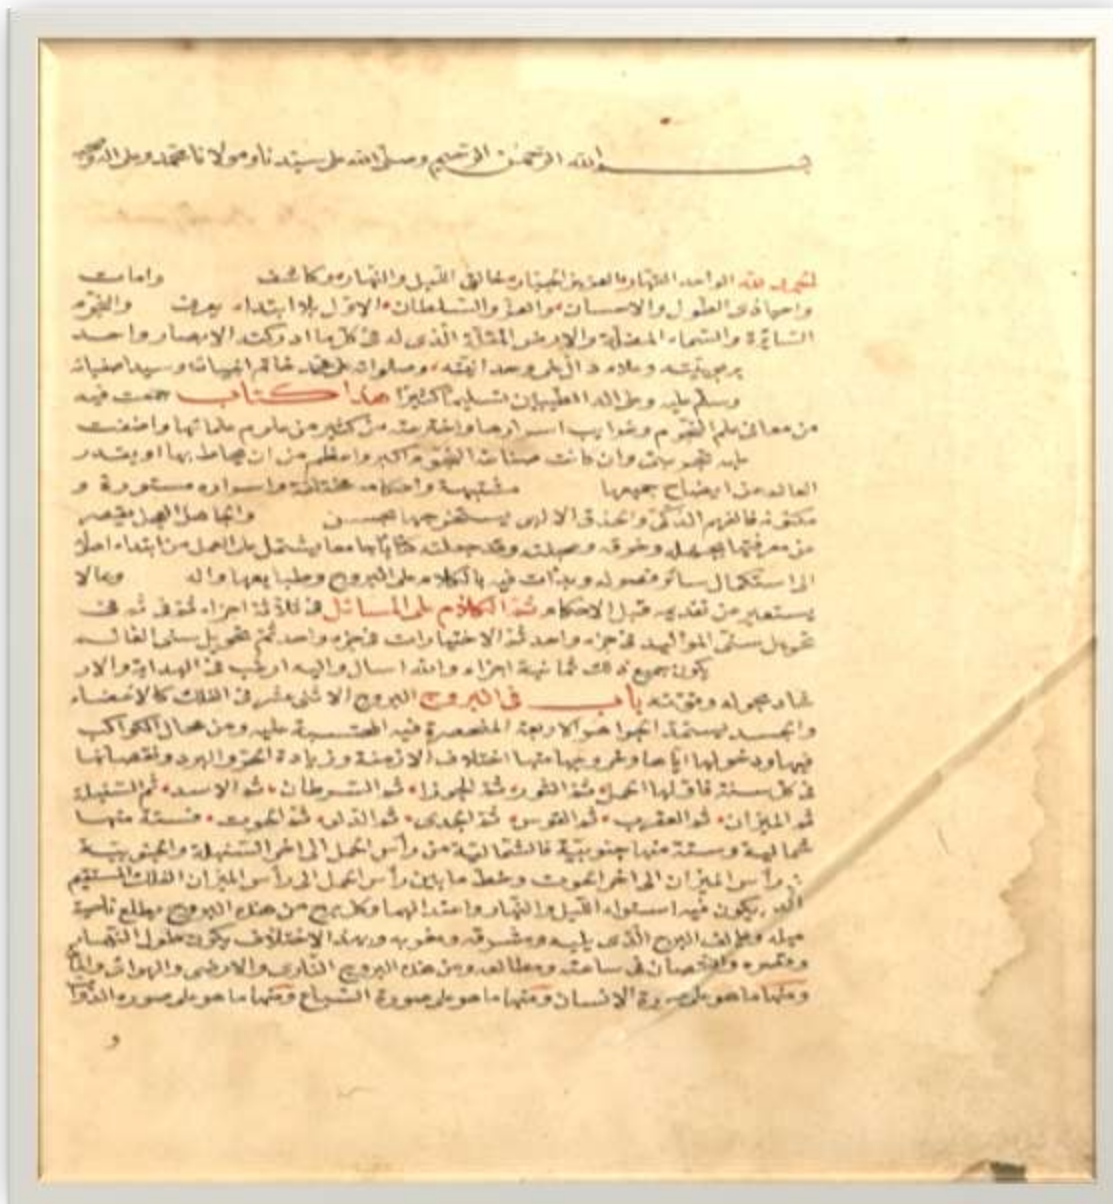 بسم الله الرحمن الرحيم وصلى الله على سيدنا ومولانا محمد وعلى اله وصحبه
الحمد لله الواحد القهار العزيز الجبار خالق الليل والنهار وكاشف وامات
واحيا ذى الطول والاحسان والعز والسلطان الاول بلا ابتداء يعرف والنجوم
السائرة والسماء المضلة والارض المقلة الذى له فى كل ما ادركت الابصار واحد
بربوبيته دال على وحدانيته وصلواته على محمد خاتم انبيائه وسيد اصفيائه
وسلم عليه وعلى اله الطيبين تسليما كثيرا هذا كتاب جمعت فيه
من معانى علم النجوم وغرايب اسرارها واخترعته من كثير من علوم علمائها واضفت
عليه وان كانت صناعة النجوم اكبر واعظم من ان يحاط بها او يقدر
العالم من ايضاح جميعها مشتبهة واحكامه مختلفة واسراره مستورة و
مكنونه فالفهم الذكى والحذق الالهى يستخرجها بحسن والجاهل الهمل مقصر
من معرفتها بجهله وقد جعلته كتابا جامعا يشتمل على العمل من ابتداء اصله
الى استكمال سائر فصوله وبدات فيه بالكلام على البروج وطبايعها واله ومالا
يستغير من تقديمه قبل الاحكام ثم الكلام على المسائل فى ثلاثة اجزاء ثم فى ثم فى
تحويل سنى المواليد فى جزء واحد ثم الاختيارات فى جزء واحد ثم تحويل سنى العالم
يكون جميع ذلك ثمانية اجزاء والله اسال واليه ارغب فى الهداية والار
شاد بحوله وقوته باب فى البروج البروج الاثنى عشر فى الفلك كالاعضاء
والجسد لهم الجواهر الاربعة المنحصرة فيه المحتسبة عليه ومن محال الكواكب
فيها ودخولها اياها وخروجها منها اختلاف الازمنة وزيادة الحر والبرد ونقصانها
فى كل سنة فاولها الحمل ثم الثور ثم الجوزا ثم السرطان ثم الاسد ثم السنبلة
ثم الميزان ثم العقرب ثم القوس ثم الجدى ثم الدلو ثم الحوت فستة منها
شمالية وستة منها جنوبية فالشمالية من رأس الحمل الى اخر السنبلة والجنوبية
من رأس الميزان الى اخر الحوت وخط ما بين رأس الحمل الى رأس الميزان الفلك المستقيم
الذى يكون فيه استواء الليل والنهار واعتدالهما وكل برج من هذه البروج مطلع ناحية
ميله وخلاف البرج الذى يليه ومشرقه ومغربه وبهذا الاختلاف يكون طول النهار
وقصره والنقصان فى ساعته ومطالعه ومن هذه البروج النارى والارضى والهوائى والمائى
ومنها ما هو على صورة الانسان ومنها ما هو على صورة السباع ومنها ما هو على صورة الدواب
و